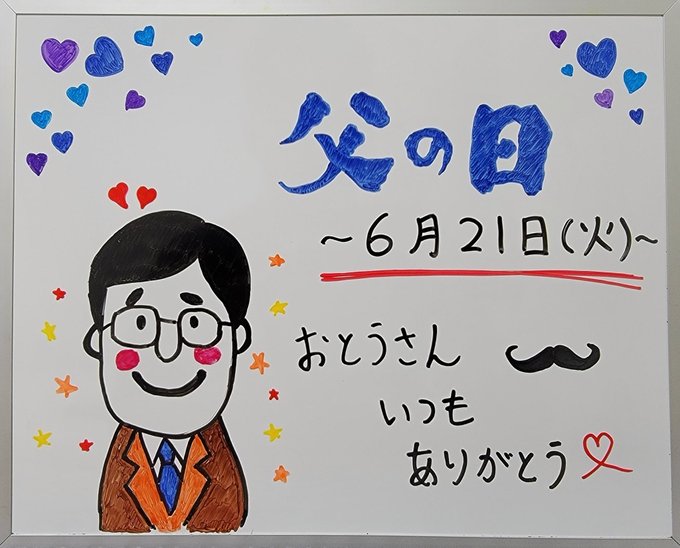 父の日
~6月21日(火)~
おとうさん
いつも
ありがとう